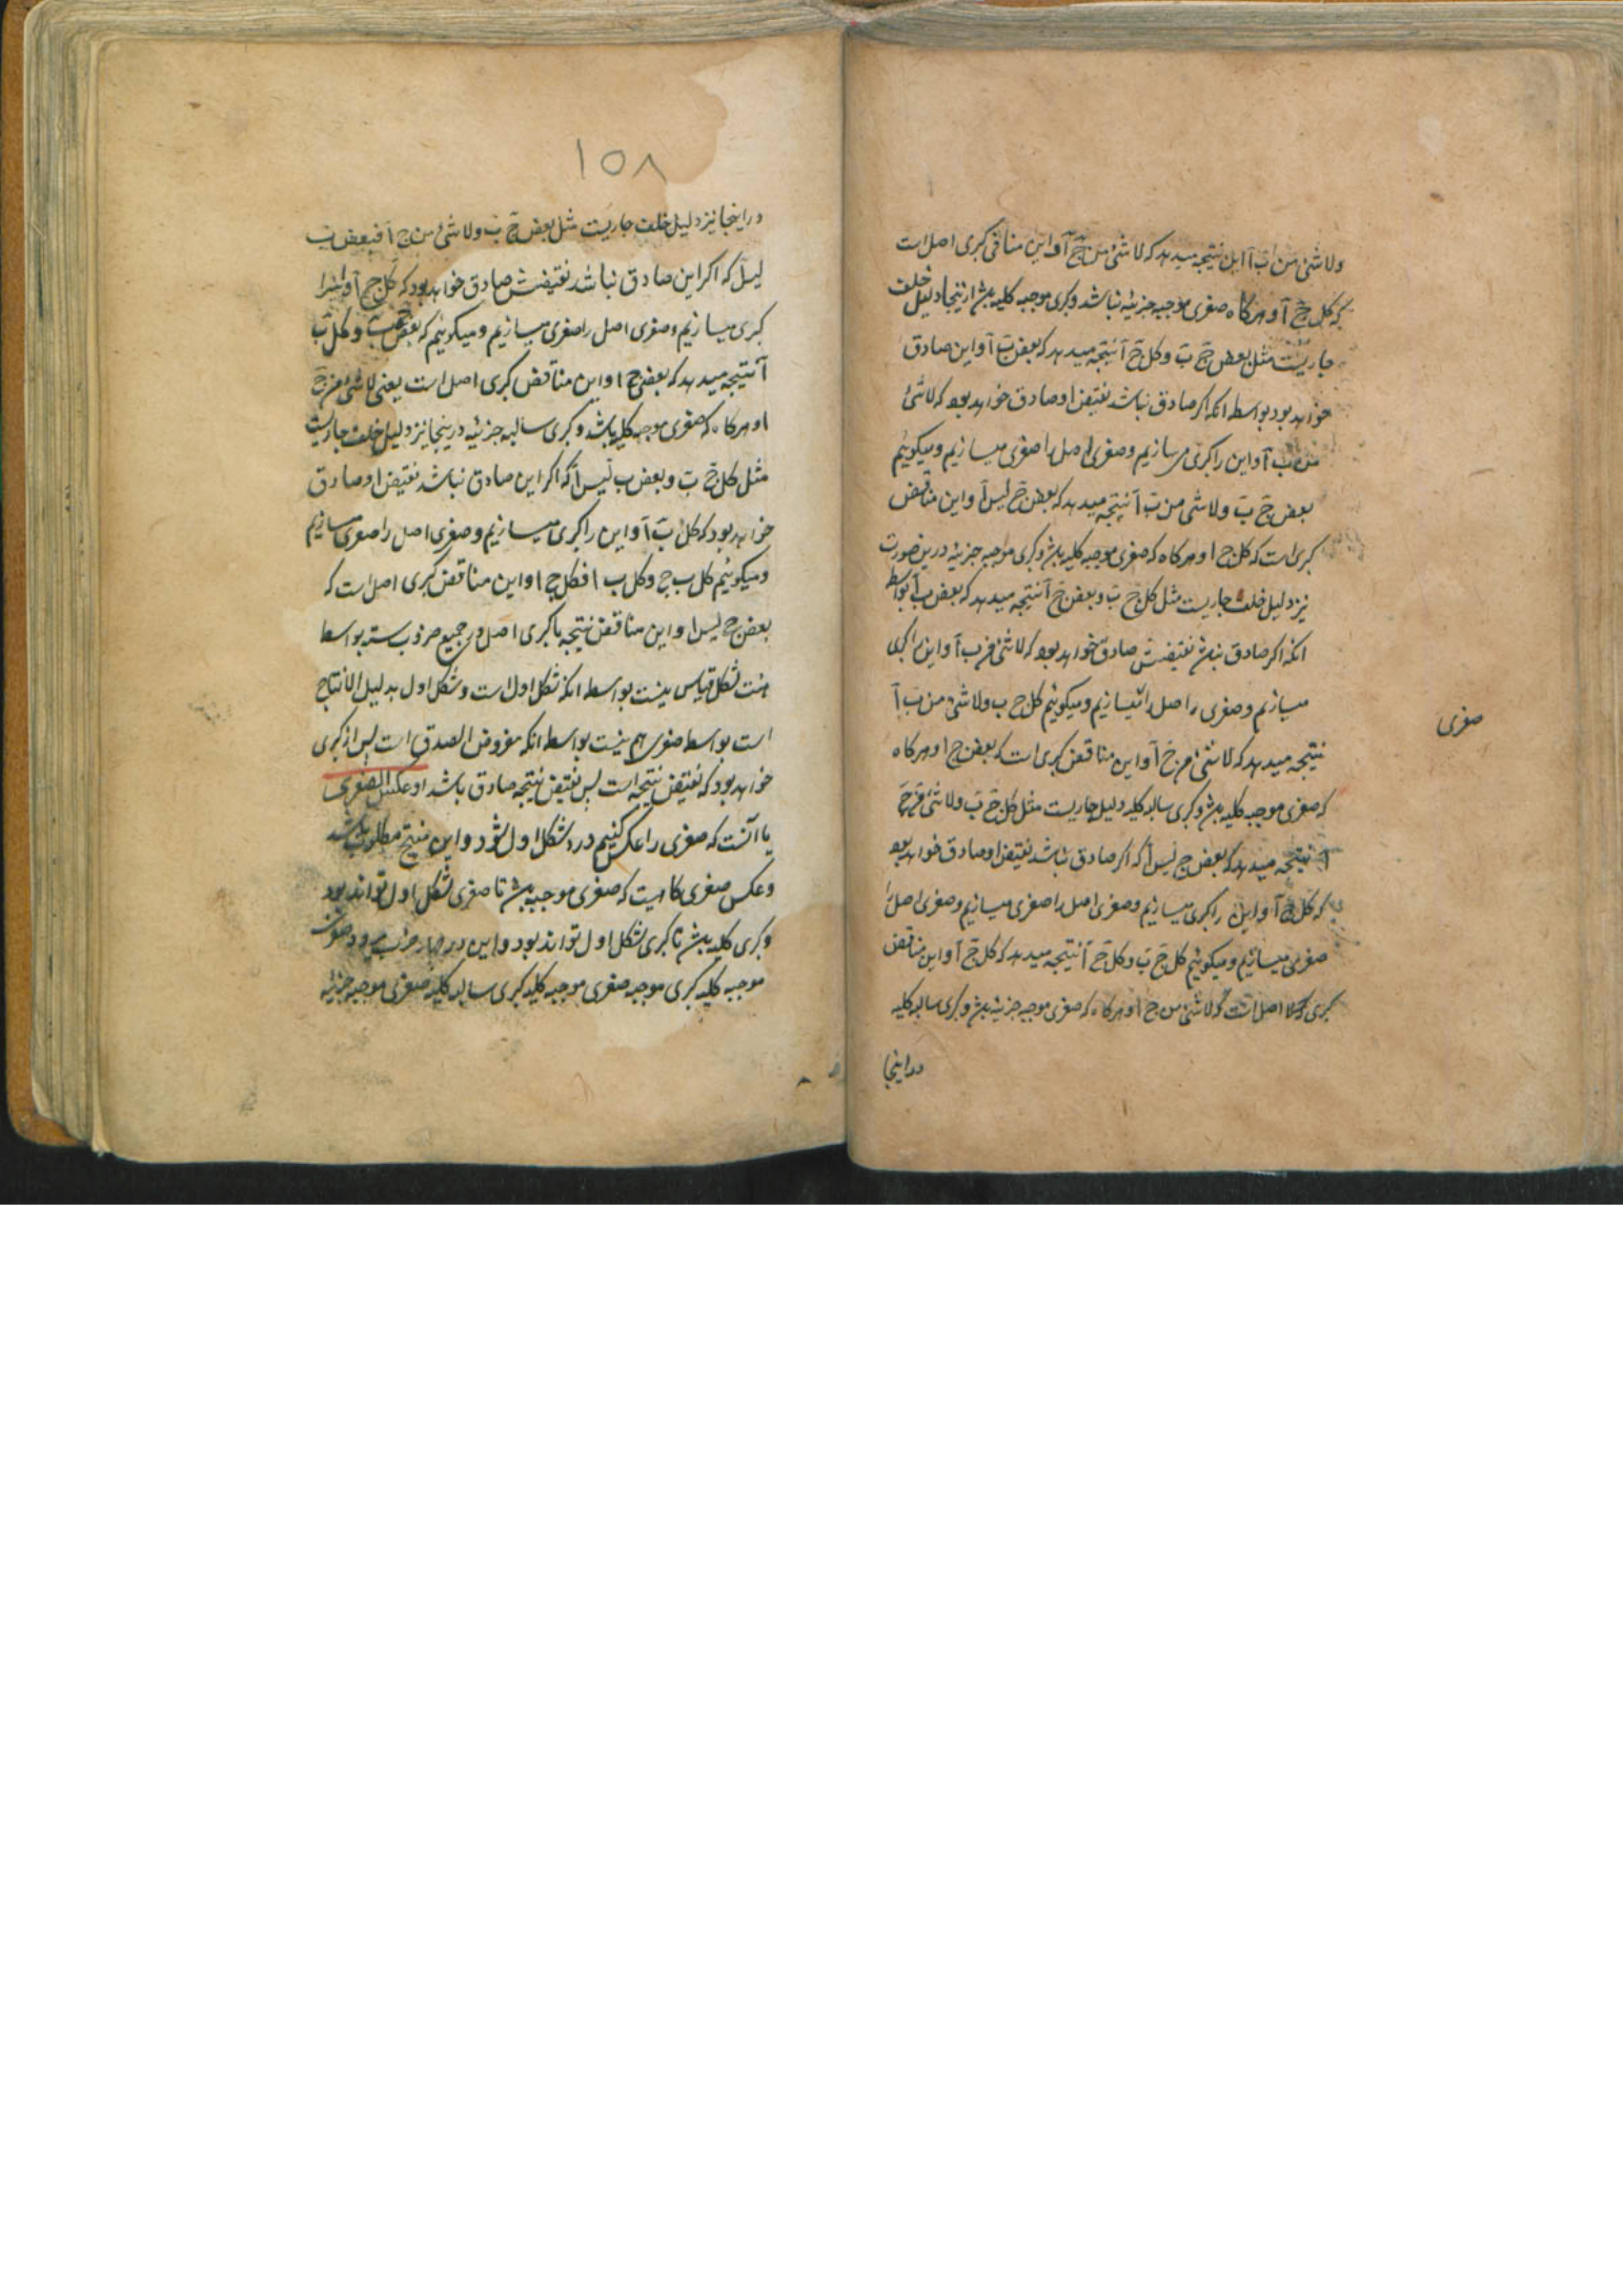 ولا شئ من ب آ این نتیجه میدهد که لا شئ من ج آ و این منافی کبری اصل است
که کل ج آ و هرگاه صغری موجبه جزئیه باشد و کبری موجبه کلیه باشد از نتیجا دلیل خلف
جاریست مثل بعض ج ب و کل ج آ نتیجه میدهد که بعض ب آ و این صادق
خواهد بود بواسطه انکه اگر صادق نباشد نقیض او صادق خواهد بود که لا شئ
من ب آ و این را کبری میسازیم و صغری اصل را صغری میسازیم و میکوئیم
بعض ج ب ولا شئ من ب آ نتیجه میدهد که بعض ج لیس آ و این مناقض
کبری است که کل ج ا و هرکاه که صغری موجبه کلیه باشد و کبری موجبه جزئیه درین صورت
نیز دلیل خلف جاریست مثل کل ج ب و بعض ج آ نتیجه میدهد که بعض ب آ بواسطه
انکه اکر صادق نباشد نقیضش صادق خواهد بود که لا شئ من ب آ و این را کبری
میسازیم و صغری اصل را میسازیم و میکوئیم کل ج ب ولا شئ من ب آ
صغری
نتیجه میدهد که لا شئ من ج آ و این مناقض کبری است که بعض ج ا و هرکاه
که صغری موجبه کلیه باشد و کبری سالبه کلیه دلیل جاریست مثل کل ج ب ولا شئ من ج
آ نتیجه میدهد که بعض ج لیس آ که اکر صادق نباشد نقیض او صادق خواهد بود
که کل ج آ و این را کبری میسازیم و صغری اصل را صغری میسازیم و صغری اصل را
صغری میسازیم و میکوئیم کل ج ب و کل ج آ نتیجه میدهد که کل ج آ و این مناقض
کبری اصل است که لا شئ من ج ا و هرکاه که صغری موجبه جزئیه باشد و کبری سالبه کلیه
در اینجا
١٥٨
در اینجا نیز دلیل خلف جاریست مثل بعض ج ب ولا شئ من ج آ فبعض ب
لیس آ که اکر این صادق نباشد نقیضش صادق خواهد بود که کل ج آ و اینرا
کبری میسازیم و صغری اصل را صغری میسازیم و میکوئیم که بعض ج ب و کل ب
آ نتیجه میدهد که بعض ج ا و این مناقض کبری اصل است یعنی لا شئ من ج
ا و هرکاه که صغری موجبه کلیه باشد و کبری سالبه جزئیه درینجا نیز دلیل خلف جاریست
مثل کل ج ب و بعض ب لیس آ که اکر این صادق نباشد نقیض او صادق
خواهد بود که کل ب آ و این را کبری میسازیم و صغری اصل را صغری میسازیم
و میکوئیم کل ب ج و کل ب ا فکل ج ا و این مناقض کبری اصل است که
بعض ج لیس ا و این مناقض نتیجه با کبری اصل در جمیع ضروب سته بواسطه
هئت شکل قیاس نیست بواسطه انکه شکل اول است و شکل اول بدلیل الانتاج
است بواسطه صغری هم نیست بواسطه انکه مفروض الصدق است پس از کبری
خواهد بود که نقیض نتیجه است پس نقیض نتیجه صادق باشد او عکس الصغری
یا آنست که صغری را عکس کنیم در شکل اول شود و این منتج مطلوب باشد
و عکس صغری کاهیست که صغری موجبه باشد تا صغری شکل اول تواند بود
و کبری کلیه باشد تا کبری شکل اول تواند بود و این در چهار ضرب میرود صغری
موجبه کلیه کبری موجبه صغری موجبه کلیه کبری سالبه کلیه صغری موجبه جزئیه